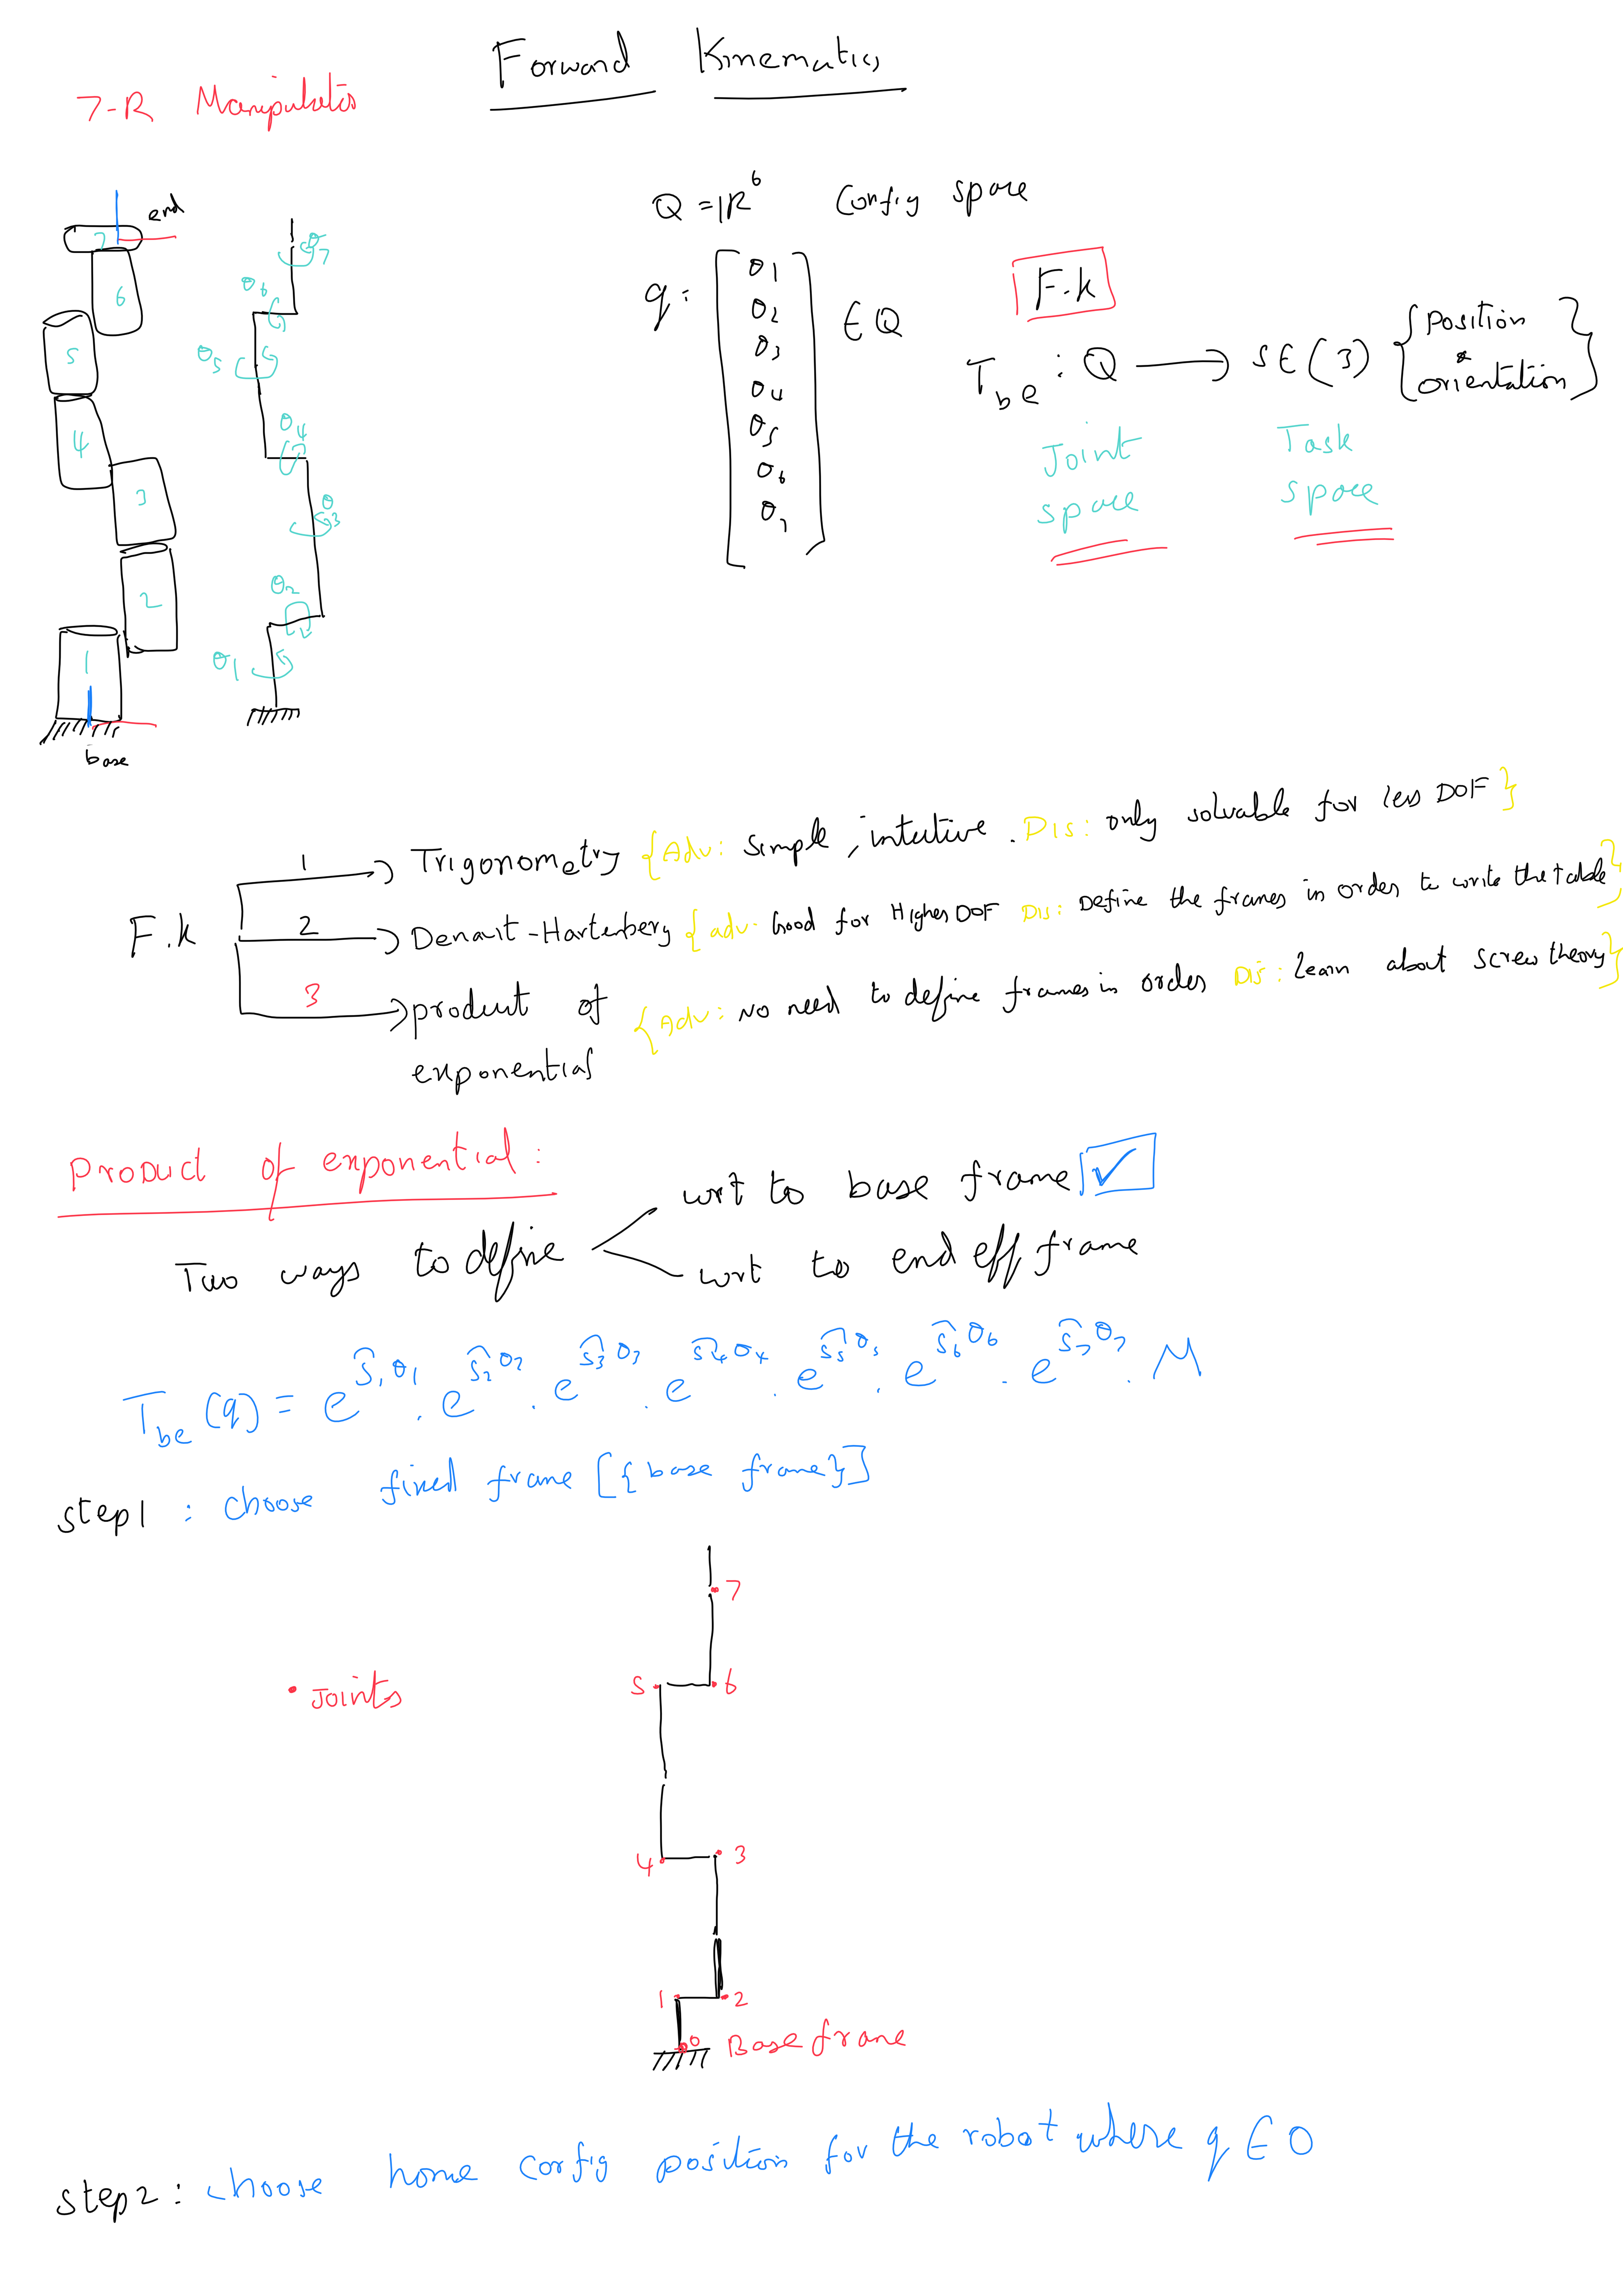 Forward Kinematics
7-R Manipulator
Q = IR^6 Config space
end
7
6
5
4
3
2
1
base
θ7
θ6
θ5
θ4
θ3
θ2
θ1
q: [θ1 θ2 θ3 θ4 θ5 θ6 θ7] ∈ Q
F.k
T_be : Q → SE(3) { position & orientation }
Joint space
Task space
F.k
1 → Trigonometry {Adv: simple, intutive. Dis: only solvable for less DOF}
2 → Denavit-Hartenberg {adv: Good for Higher DOF Dis: Define the frames in order to write the table}
3 → product of exponential {Adv: No need to define frames in order Dis: learn about screw theory}
Product of exponential:
Two ways to define
wrt to base frame ✓
wrt to end eff frame
T_be(q) = e^{ŝ1θ1} . e^{ŝ2θ2} . e^{ŝ3θ3} . e^{ŝ4θ4} . e^{ŝ5θ5} . e^{ŝ6θ6} . e^{ŝ7θ7} . M
step1 : choose fixed frame [{base frame}]
7
5 6
• Joints
4 3
1 2
0 Base frame
step2 : choose home config position for the robot where q ∈ 0